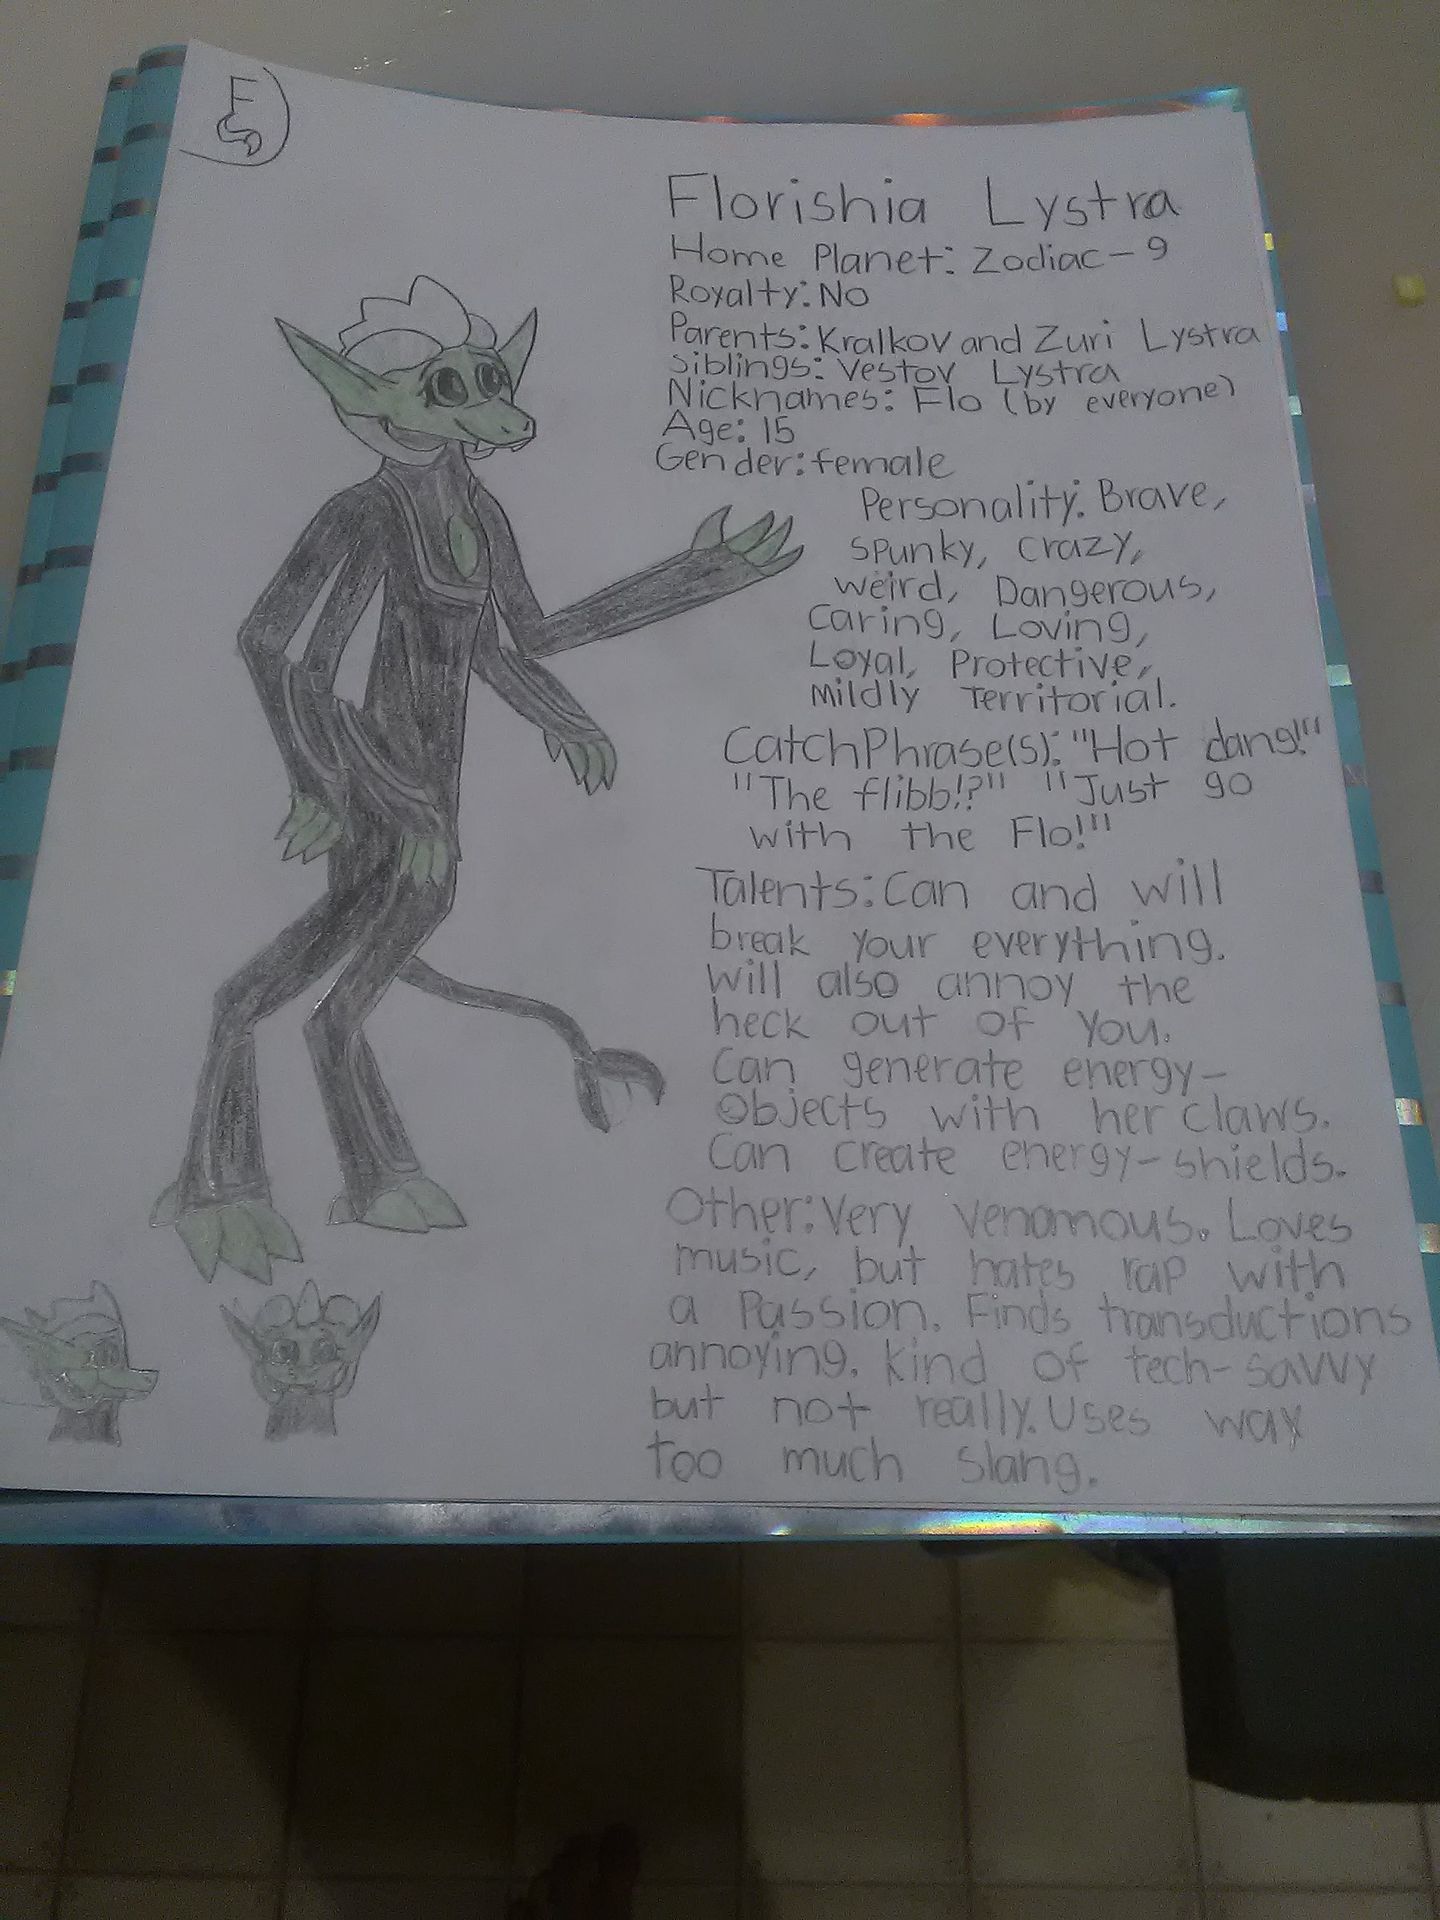 F
Florishia Lystra
Home Planet: Zodiac-9
Royalty: No
Parents: Kralkov and Zuri Lystra
Siblings: Vestov Lystra
Nicknames: Flo (by everyone)
Age: 15
Gender: female
Personality: Brave,
spunky, crazy,
weird, Dangerous,
Caring, Loving,
Loyal, Protective,
Mildly Territorial.
CatchPhrase(s): "Hot dang!"
"The flibb!?" "Just go
with the Flo!"
Talents: Can and will
break your everything.
Will also annoy the
heck out of you.
Can generate energy-
objects with her claws.
Can create energy-shields.
Other: Very venomous. Loves
music, but hates rap with
a Passion. Finds transductions
annoying. Kind of tech-savvy
but not really. Uses way
too much slang.